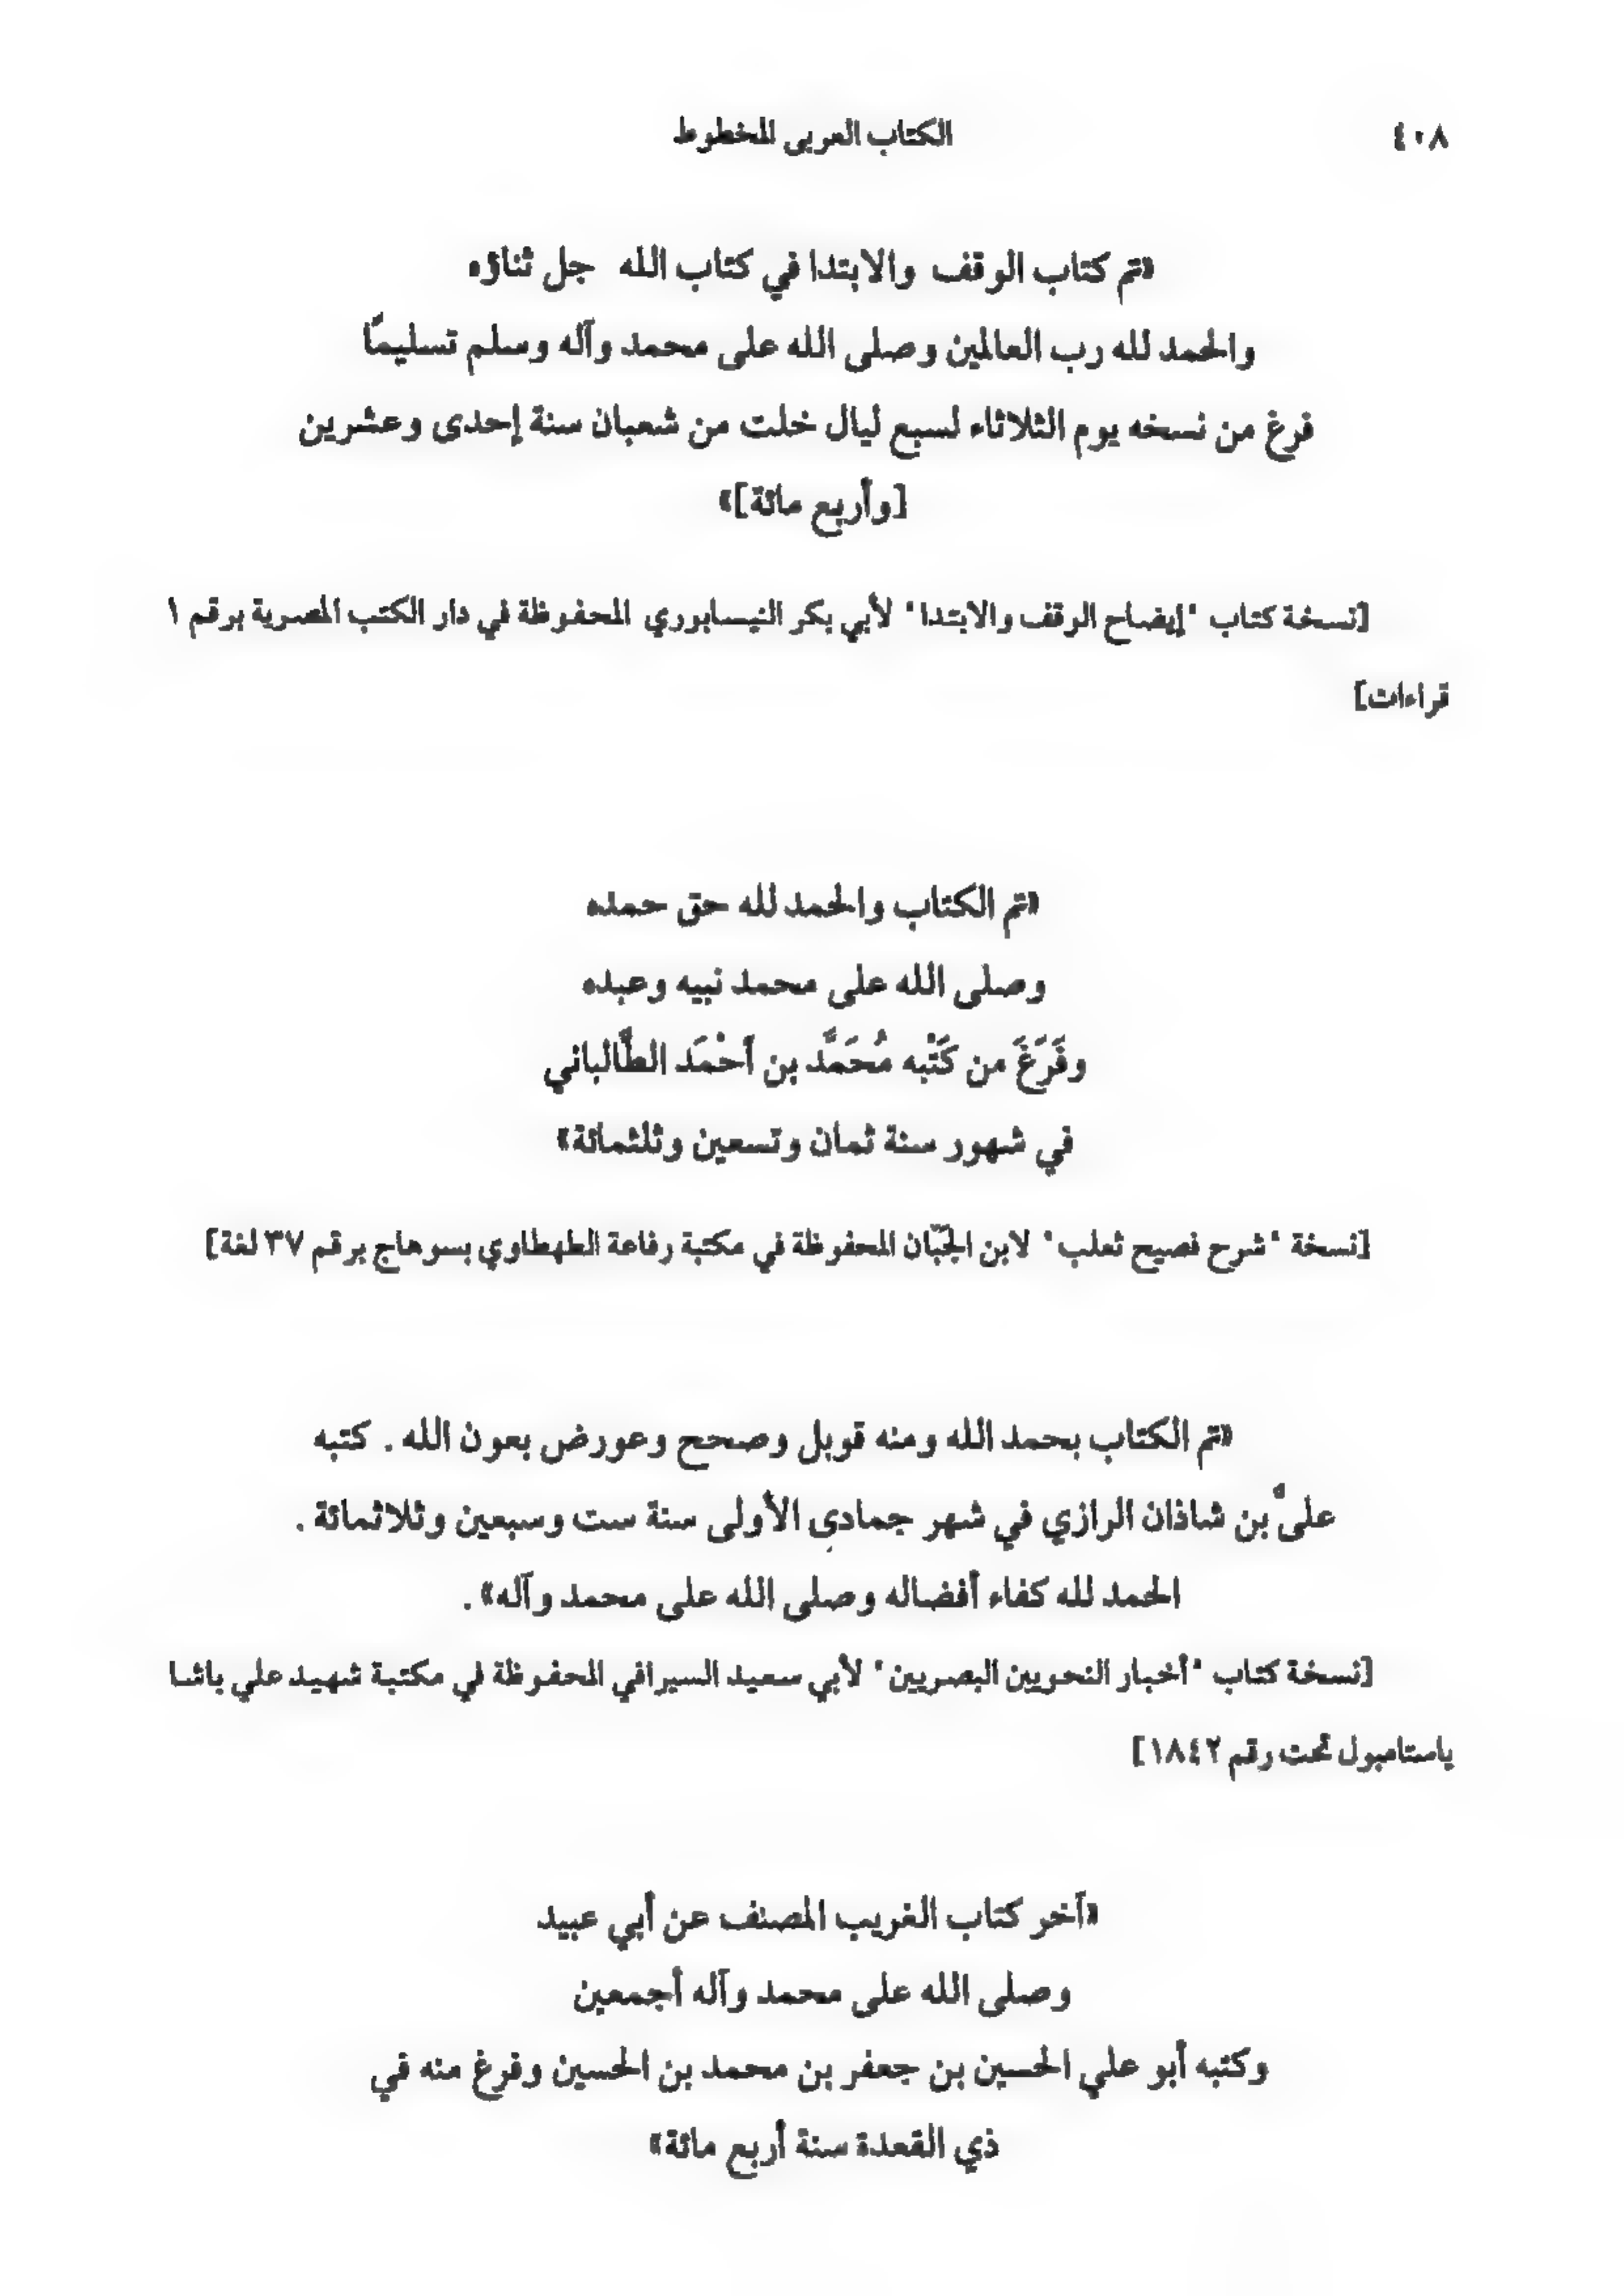 ٤٠٨ الكتاب العربى المخطوط
«تم كتاب الوقف والابتدا في كتاب الله جل ثناؤه
والحمد لله رب العالمين وصلى الله على محمد وآله وسلم تسليمًا
فرغ من نسخه يوم الثلاثاء لسبع ليال خلت من شعبان سنة إحدى وعشرين
[وأربع مائة]»
[نسخة كتاب "إيضاح الوقف والابتدا" لأبي بكر النيسابوري المحفوظة في دار الكتب المصرية برقم ١
قراءات]
«تم الكتاب والحمد لله حق حمده
وصلى الله على محمد نبيه وعبده
وفَرَغَ من كَتْبه مُحَمَّد بن أَحْمَد الطَّالباني
في شهور سنة ثمان وتسعين وثلثمائة»
[نسخة "شرح فصيح ثعلب" لابن الجَبّان المحفوظة في مكتبة رفاعة الطهطاوي بسوهاج برقم ٣٧ لغة]
«تم الكتاب بحمد الله ومنه قوبل وصحح وعورض بعون الله . كتبه
علىُّ بن شاذان الرازي في شهر جمادى الأولى سنة ست وسبعين وثلاثمائة .
الحمد لله كفاء أفضاله وصلى الله على محمد وآله» .
[نسخة كتاب "أخبار النحويين البصريين" لأبي سعيد السيرافي المحفوظة في مكتبة شهيد علي باشا
باستامبول تحت رقم ١٨٤٢]
«آخر كتاب الغريب المصنف عن أبي عبيد
وصلى الله على محمد وآله أجمعين
وكتبه أبو علي الحسين بن جعفر بن محمد بن الحسين وفرغ منه في
ذي القعدة سنة أربع مائة»